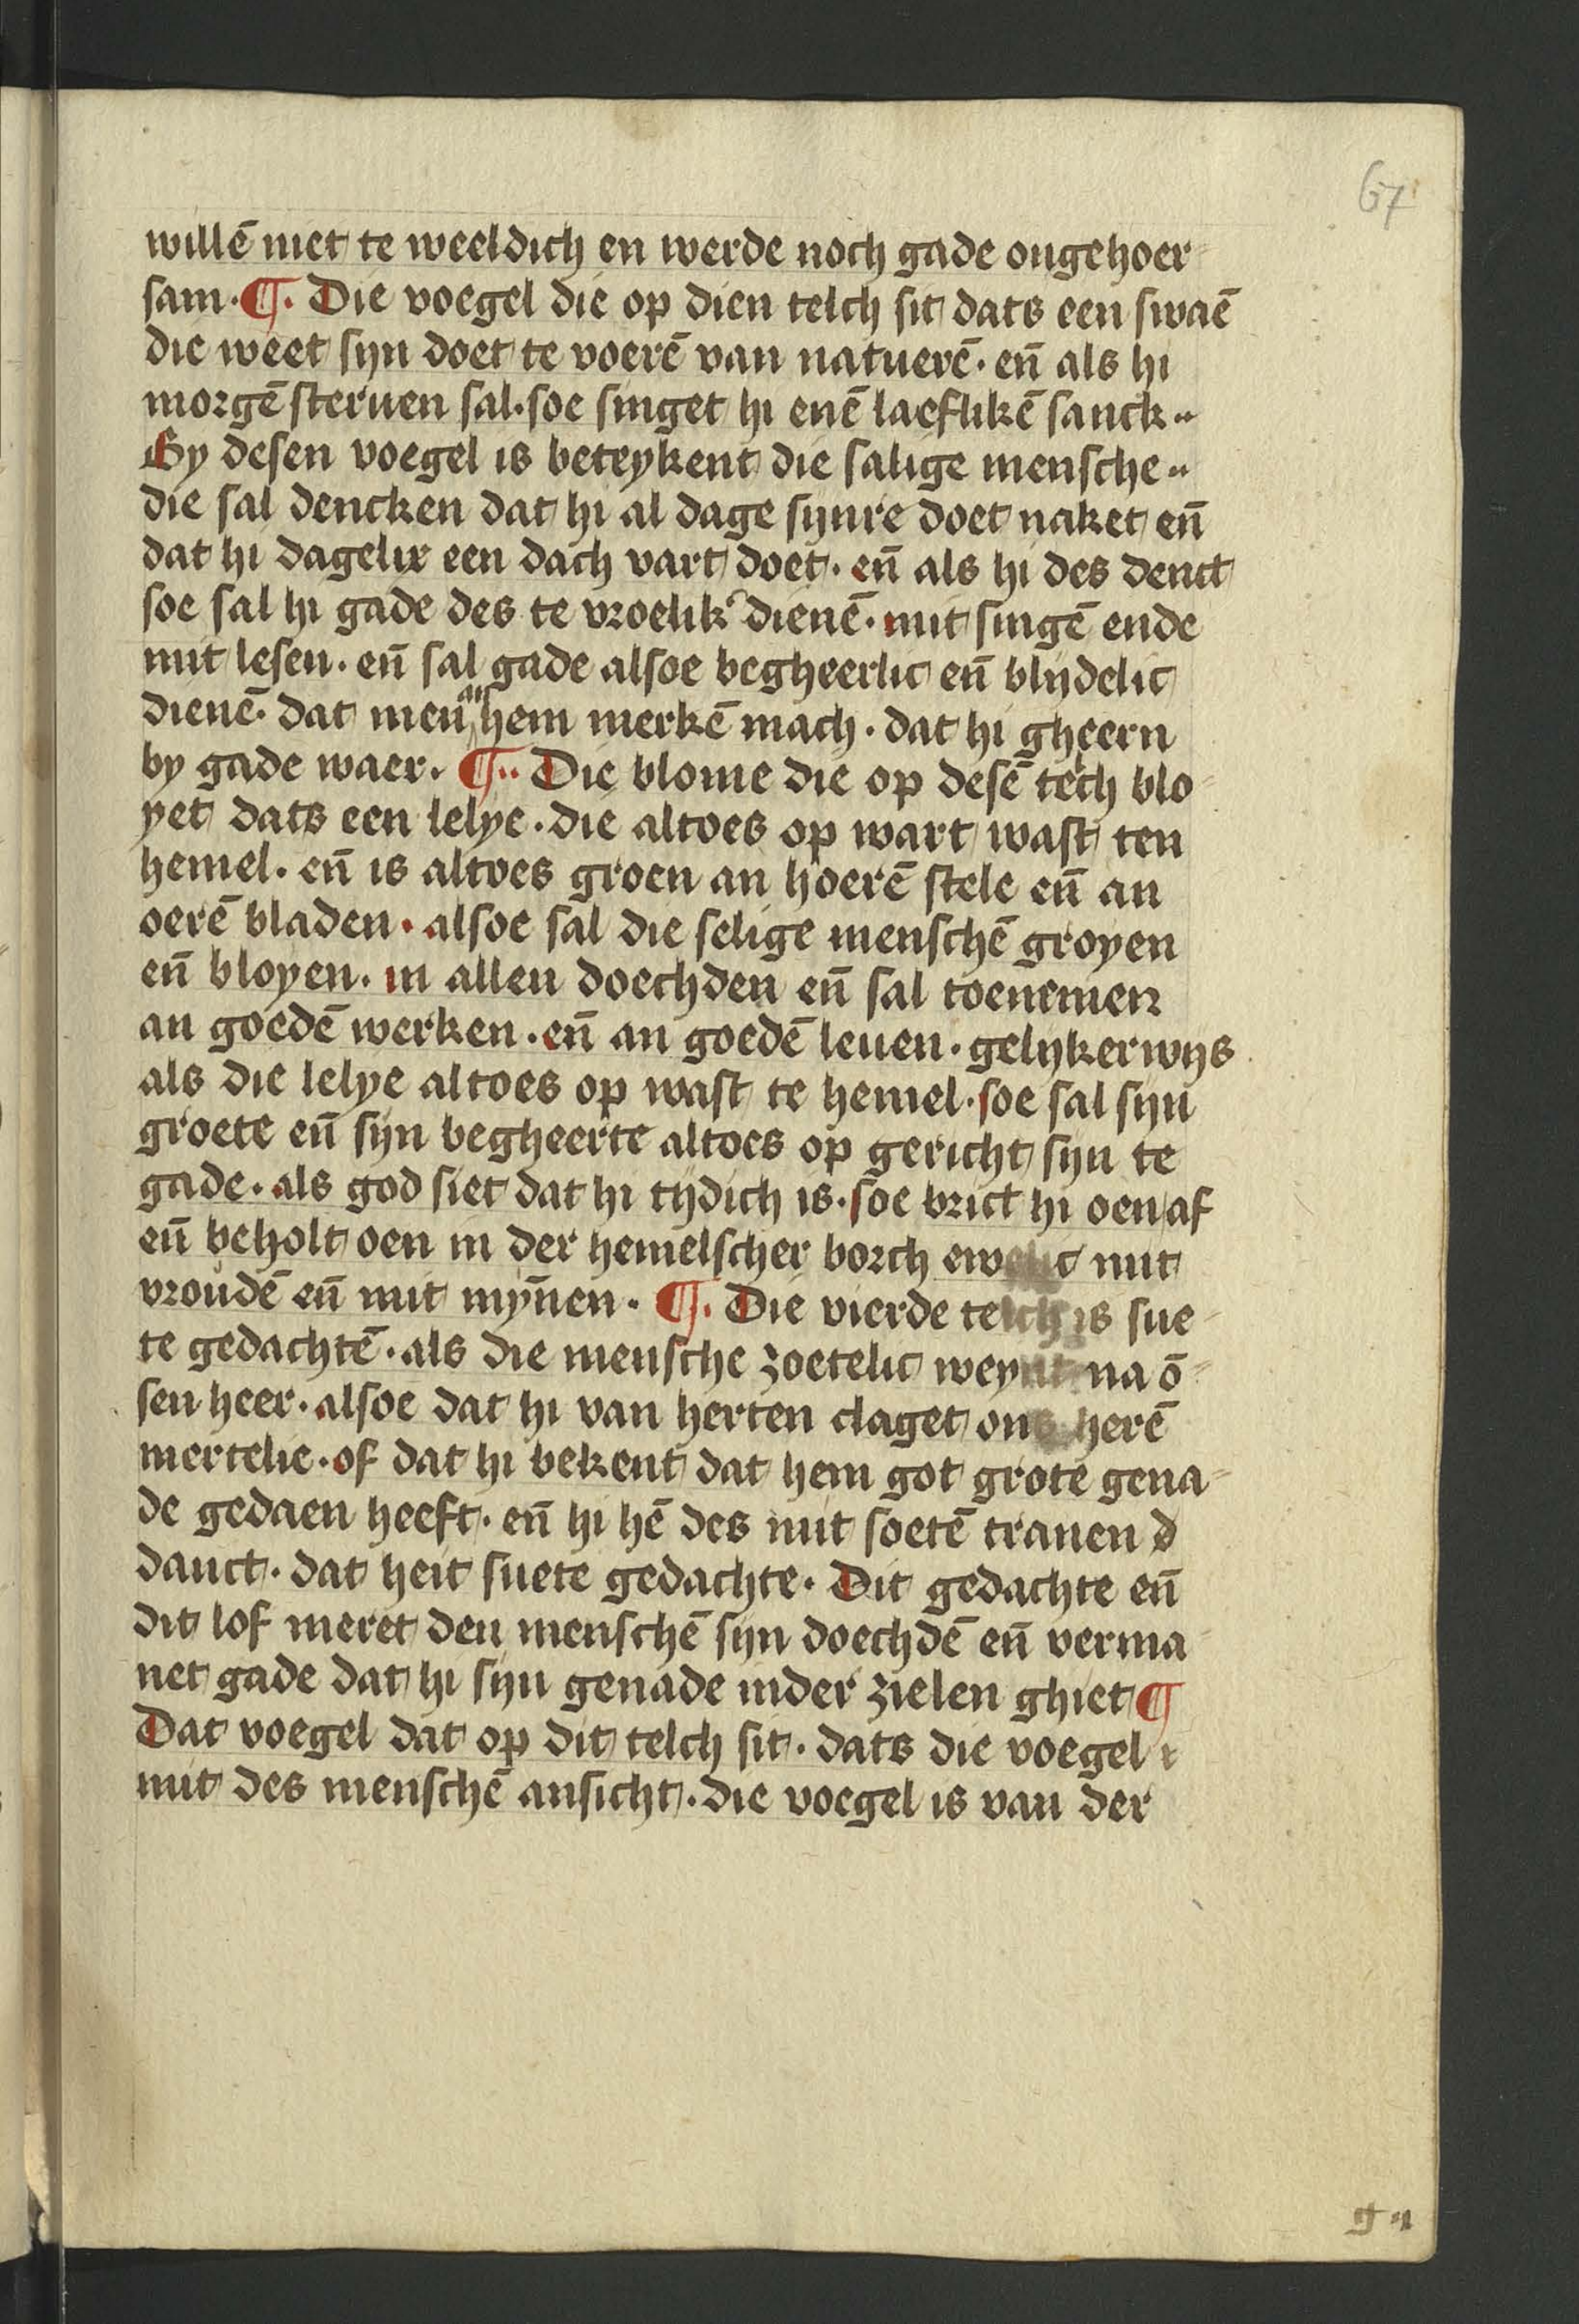 67
willē niet te weeldich en werde noch gade ongehoer
sam · ¶ · Die voegel die op dien telch sit dats een swaē
die weet syn doet te voerē van natuerē · en̄ als hi
morgē steruen sal · soe singet hi enē laeflikē sanck ··
By desen voegel is beteykent die salige mensche ··
die sal dencken dat hi al dage synre doet naket en̄
dat hi dagelix een dach vart doet · en̄ als hi des denct
soe sal hi gade des te vroelik' dienē · mit singē ende
mit lesen · en̄ sal gade alsoe begheerlic en̄ blijdelic
dienē · dat men an hem merkē mach · dat hi gheern
by gade waer · ¶ ·· Die blome die op desē tech blo
yet dats een lelye · die altoes op wart wast ten
hemel · en̄ is altoes groen an hoerē stele en̄ an
oerē bladen · alsoe sal die selige menschē groyen
en̄ bloyen · in allen doechden en̄ sal toenemen
an goedē werken · en̄ an goedē leuen · gelijkerwijs
als die lelye altoes op wast te hemel · soe sal sijn
groete en̄ sijn begheerte altoes op gericht sijn te
gade · als god siet dat hi tijdich is · soe brict hi oen af
en̄ beholt oen in der hemelscher borch ewelic mit
vroudē en̄ mit myn̄en · ¶ · Die vierde telch is sue
te gedachtē · als die mensche zoetelic weynt na ō
sen heer · alsoe dat hi van herten claget ons herē
mertelie · of dat hi bekent dat hem got grote gena
de gedaen heeft · en̄ hi hē des mit soetē tranen d
danct · dat heit suete gedachte · Dit gedachte en̄
dit lof meret den menschē sijn doechdē en̄ verma
net gade dat hi sijn genade inder zielen ghiet ¶
Dat voegel dat op dit telch sit · dats die voegel
mit des menschē ansicht · die voegel is van der